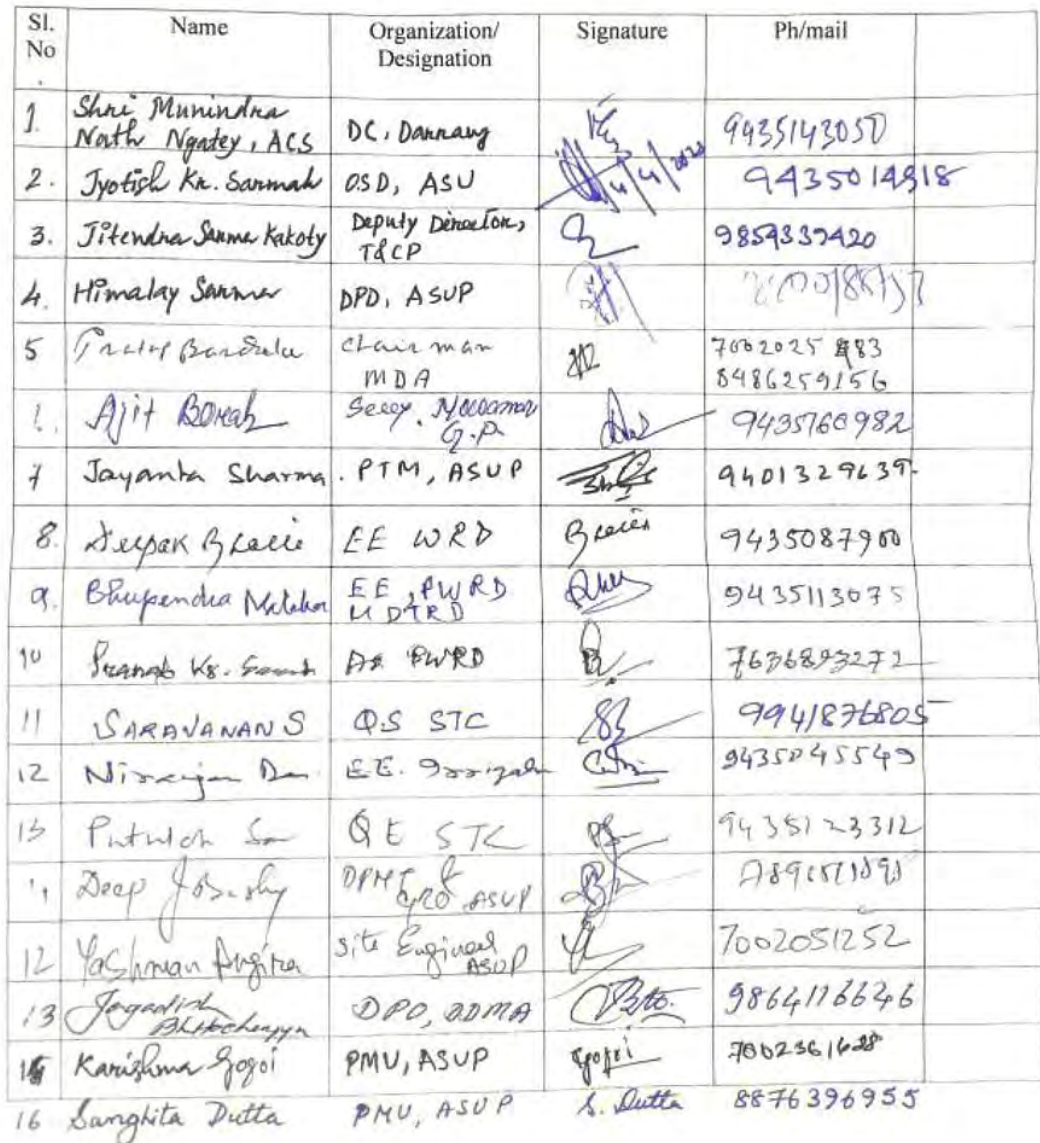 Sl. No . Name Organization/ Designation Signature Ph/mail
1. Shri Munindra Nath Ngatey, ACS DC, Darrang 9435143050
2. Jyotish Kr. Sarmah OSD, ASU 14/4/2023 9435014918
3. Jitendra Sarma Kakoty Deputy Director, T&CP 9854339420
4. Himalay Sarma DPD, ASUP
5 Chairman MDA 7002025 483 8486259156
Ajit Borah Secy. G.P. 9435760982
7 Jayanta Sharma. PTM, ASUP 9401329639
8. Deepak EE WRD 9435087900
9. Bhupendra Malakar EE, PWRD 9435113075
10 Pranab Kr. PWRD 7636893272
11 SARAVANAN S QS STC 9941876805
12 Niranjan EE. 9435045549
13 QE STC 9435123312
Deep ASUP
12 Yashman Site Engineer ASUP 7002051252
13 Jagadish Bhattacharyya DPO, DDMA 9864116646
Karishma Gogoi PMU, ASUP Gogoi 7002361628
16 Sanghita Dutta PMU, ASUP S. Dutta 8876396955